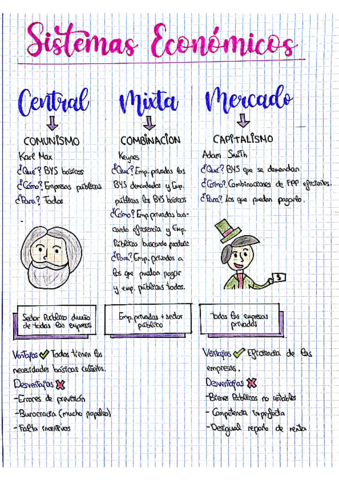 Sistemas Económicos
Central
COMUNISMO
Karl Max
¿Qué? BYS básicos
¿Cómo? Empresas públicas
¿Para? Todos
Sector Público dueño
de todas las empresas
Ventajas Todos tienen las
necesidades básicas cubiertas.
Desventajas
-Errores de previsión
-Burocracia (mucho papeleo)
-Falta incentivos
Mixta
COMBINACION
Keynes
¿Qué? Emp. privadas los
BYS demandados y Emp.
públicas los BYS básicos
¿Cómo? Emp. privadas bus-
cando eficiencia y Emp.
Públicas buscando
¿Para? Emp. privadas a
los que puedan pagar
y emp. públicas todos.
Emp. privadas + sector
público
Mercado
CAPITALISMO
Adam Smith
¿Qué? BYS que se demandan
¿Cómo? Combinaciones de FPP eficientes.
¿Para? Los que puedan pagarlo.
$
Todas las empresas
privadas
Ventajas Eficiencia de las
empresas.
Desventajas
-Bienes Públicos no rentables
-Competencia imperfecta
-Desigual reparto de renta